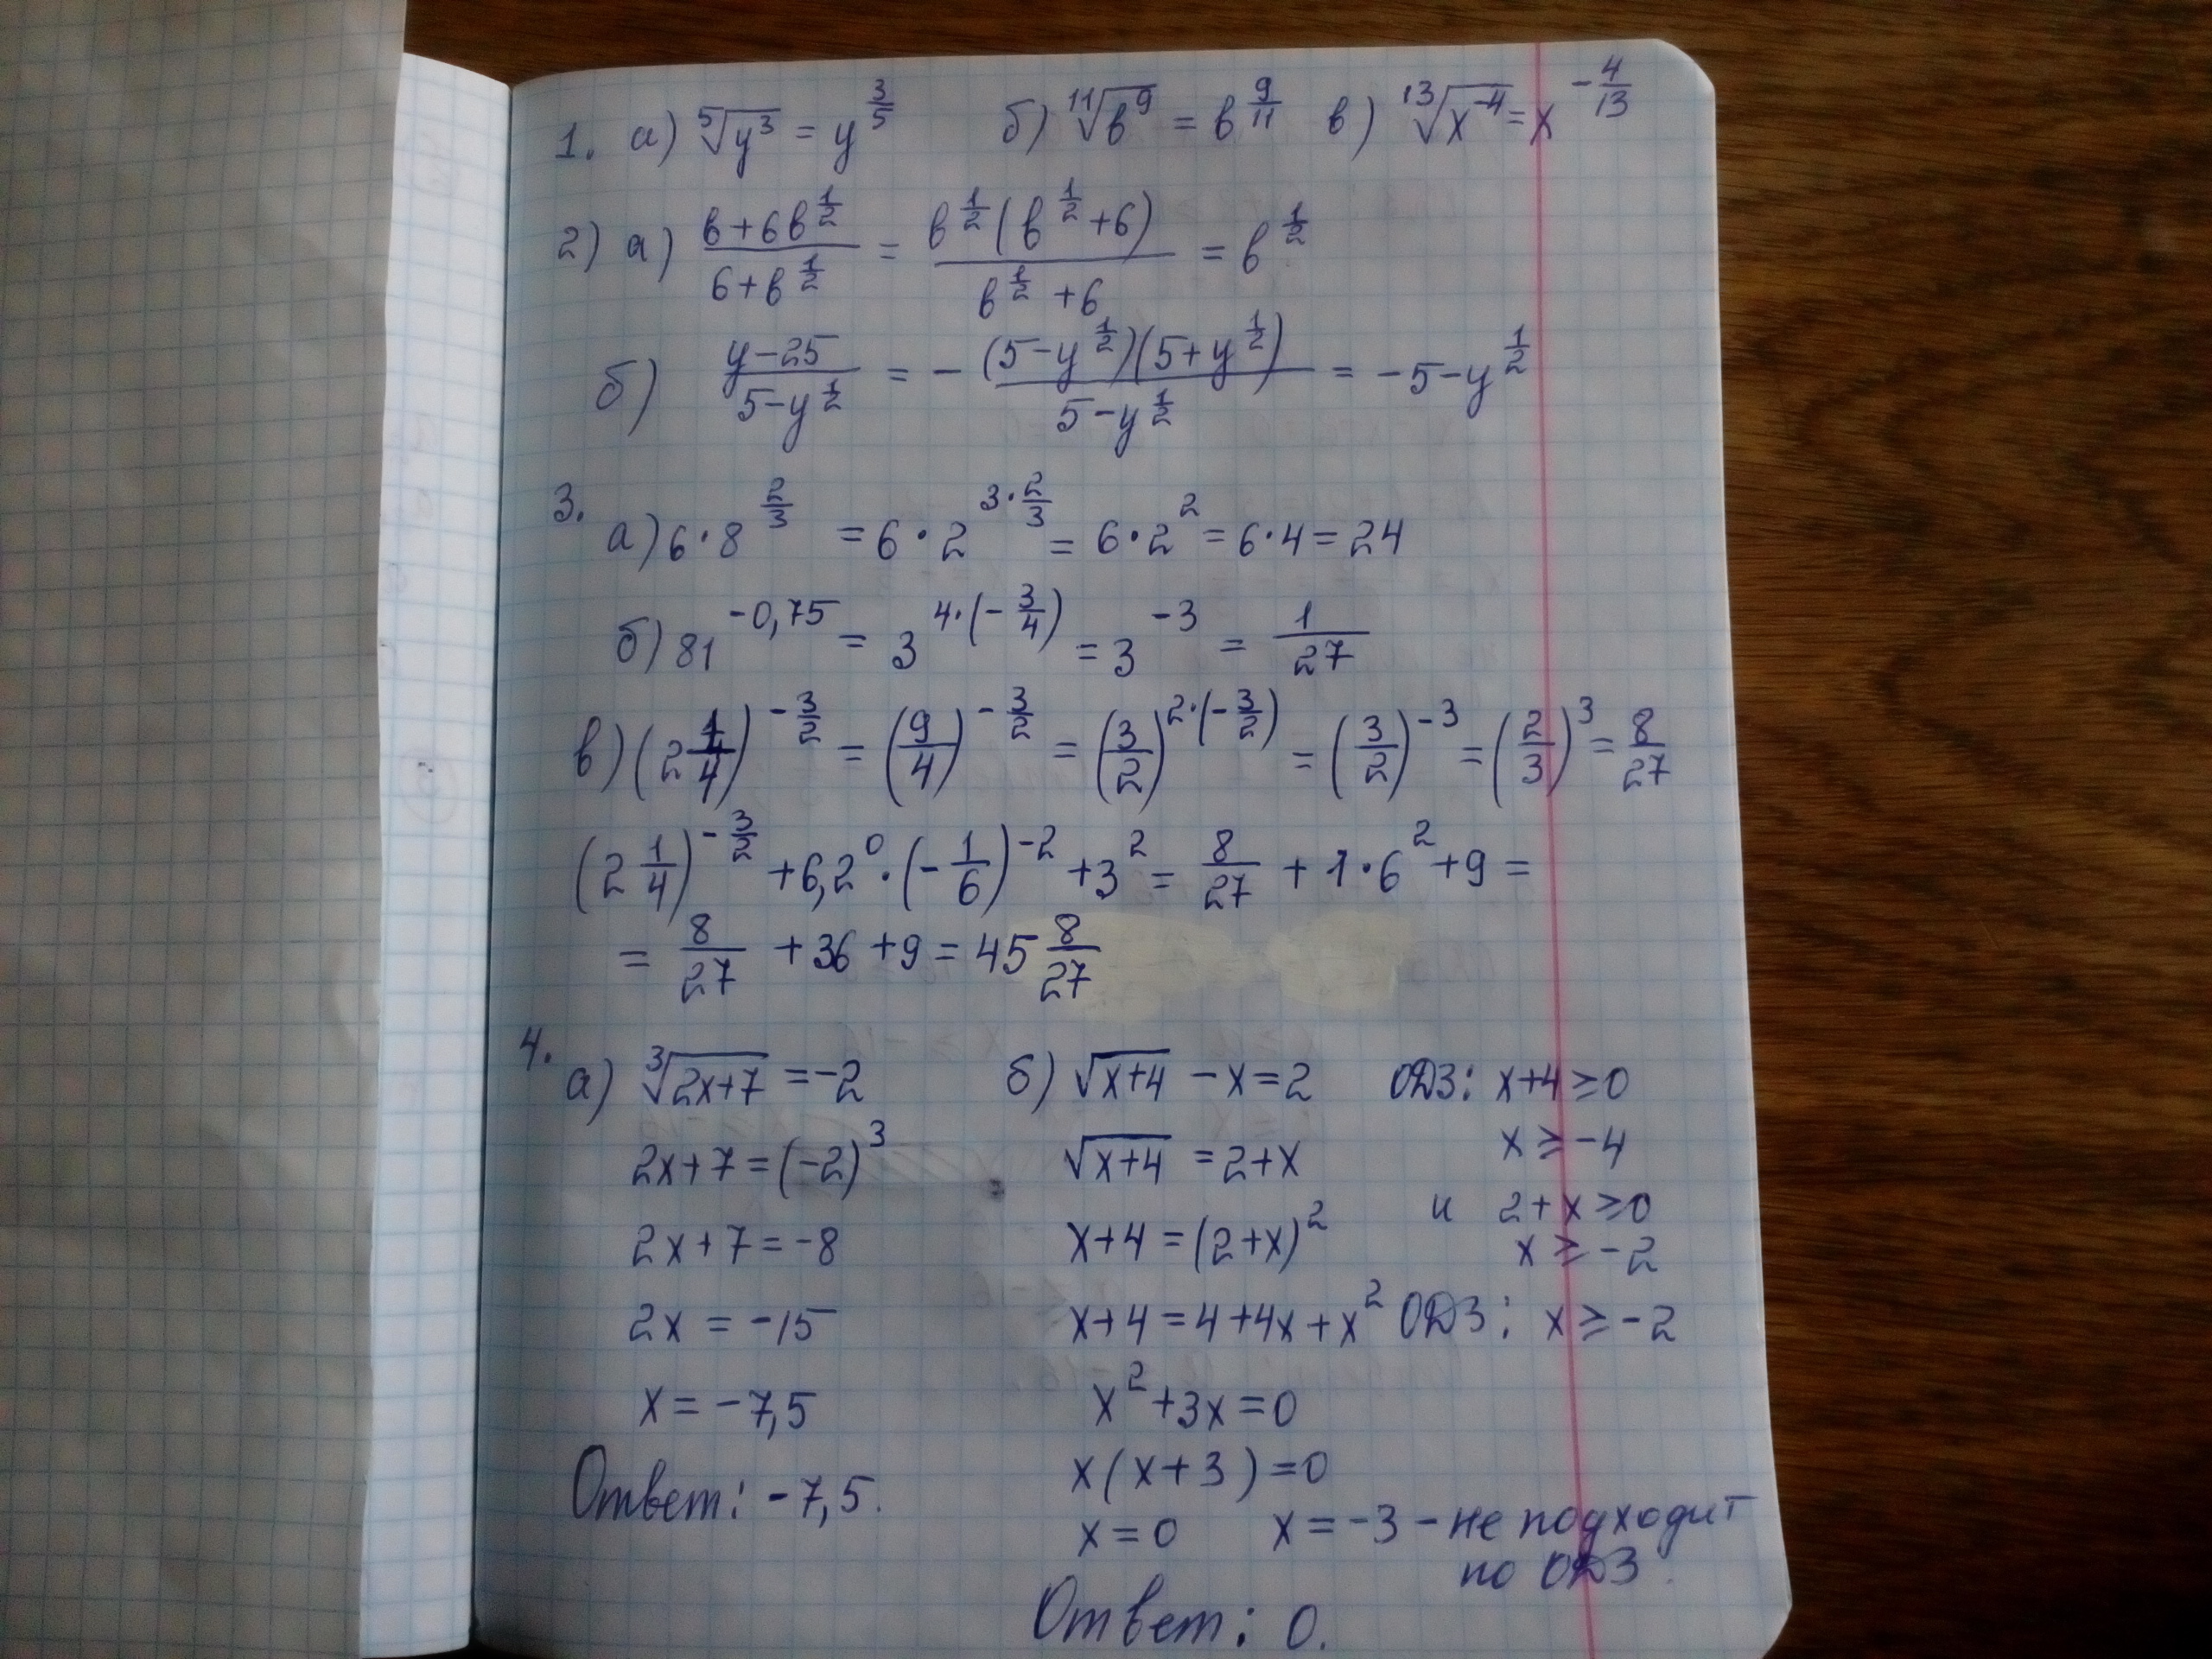 1. а) ⁵√y³ = y^(3/5) б) ¹¹√в⁹ = в^(9/11) в) ¹³√x⁻⁴ = x^(-4/13)
2) а) (в+6в^(1/2))/(6+в^(1/2)) = (в^(1/2)(в^(1/2)+6))/(в^(1/2)+6) = в^(1/2)
б) (y-25)/(5-y^(1/2)) = -((5-y^(1/2))(5+y^(1/2)))/(5-y^(1/2)) = -5-y^(1/2)
3. а) 6·8^(2/3) = 6·2^(3·2/3) = 6·2² = 6·4 = 24
б) 81^(-0,75) = 3^(4·(-3/4)) = 3⁻³ = 1/27
в) (2 1/4)^(-3/2) = (9/4)^(-3/2) = (3/2)^(2·(-3/2)) = (3/2)⁻³ = (2/3)³ = 8/27
(2 1/4)^(-3/2) + 6,2⁰·(-1/6)⁻² + 3² = 8/27 + 1·6² + 9 =
= 8/27 + 36 + 9 = 45 8/27
4. а) ³√(2x+7) = -2
2x+7 = (-2)³
2x+7 = -8
2x = -15
x = -7,5
Ответ: -7,5.
б) √(x+4) - x = 2 ОДЗ: x+4 ≥ 0
√(x+4) = 2+x x ≥ -4
x+4 = (2+x)² и 2+x ≥ 0
x ≥ -2
x+4 = 4+4x+x² ОДЗ: x ≥ -2
x²+3x = 0
x(x+3) = 0
x = 0 x = -3 - не подходит
по ОДЗ.
Ответ: 0.